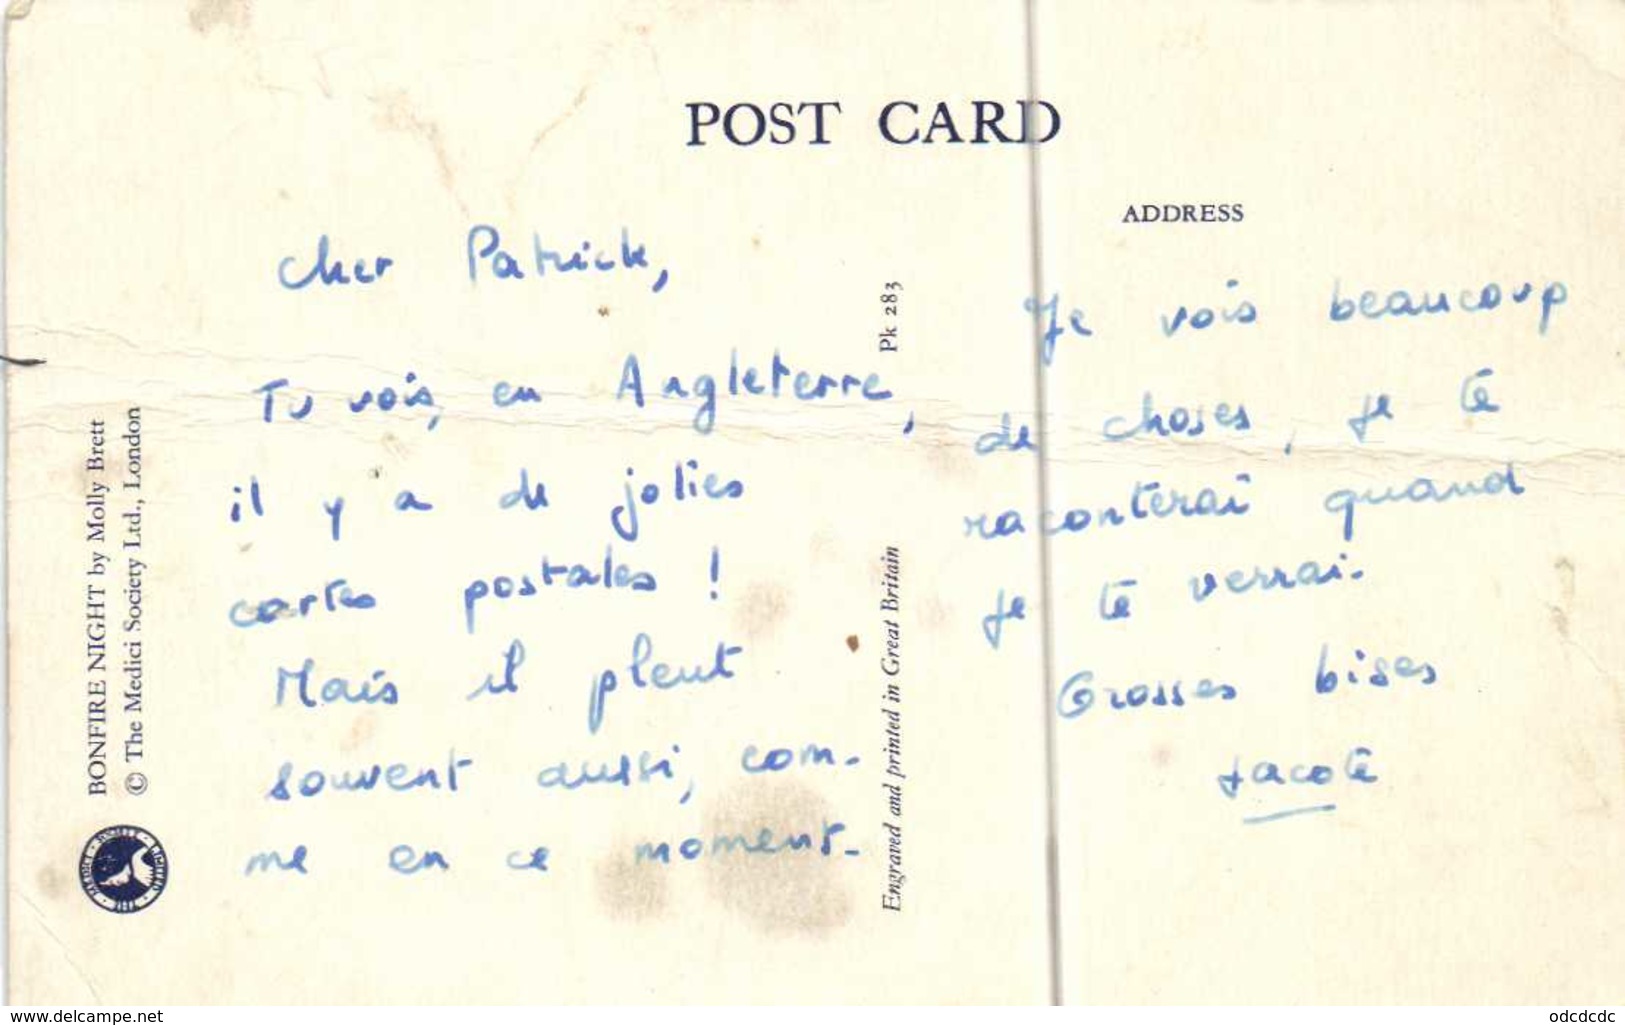 POST CARD
ADDRESS
Cher Patrick,
Tu vois, en Angleterre,
il y a de jolies
cartes postales !
Mais il pleut
souvent aussi, com-
me en ce moment.
Je vois beaucoup
de choses, je te
raconterai quand
je te verrai.
Grosses bises
Jacote
BONFIRE NIGHT by Molly Brett
© The Medici Society Ltd., London
THE MEDICI SOCIETY LIMITED
Pk 283
Engraved and printed in Great Britain
www.delcampe.net
odcdcdc